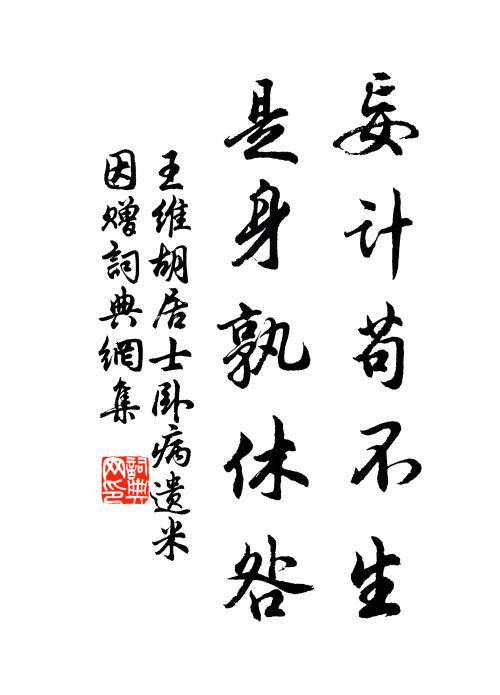 妄计苟不生
是身孰休咎
王维胡居士卧病遗米
因赠词典網集
詞典网印